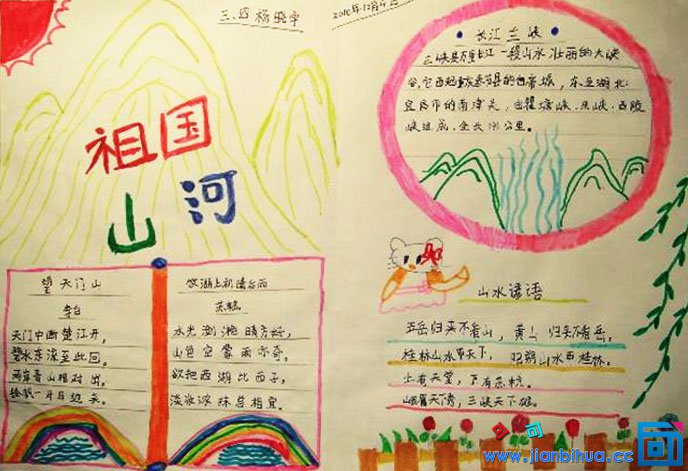 三.四 杨晓宇
祖国
山河
望天门山
李白
天门中断楚江开，
碧水东流至此回。
两岸青山相对出，
孤帆一片日边来。
饮湖上初晴后雨
苏轼
水光潋滟晴方好，
山色空蒙雨亦奇。
欲把西湖比西子，
淡妆浓抹总相宜。
长江三峡
三峡是万里长江一段山水壮丽的大峡
谷，它西起重庆奉节县的白帝城，东至湖北
宜昌市的南津关，由瞿塘峡.巫峡.西陵
峡组成，全长191公里。
山水谚语
五岳归来不看山，黄山归来不看岳。
桂林山水甲天下，阳朔山水甲桂林。
上有天堂，下有苏杭。
峨眉天下秀，三峡天下雄。
www.jianbihua.cc